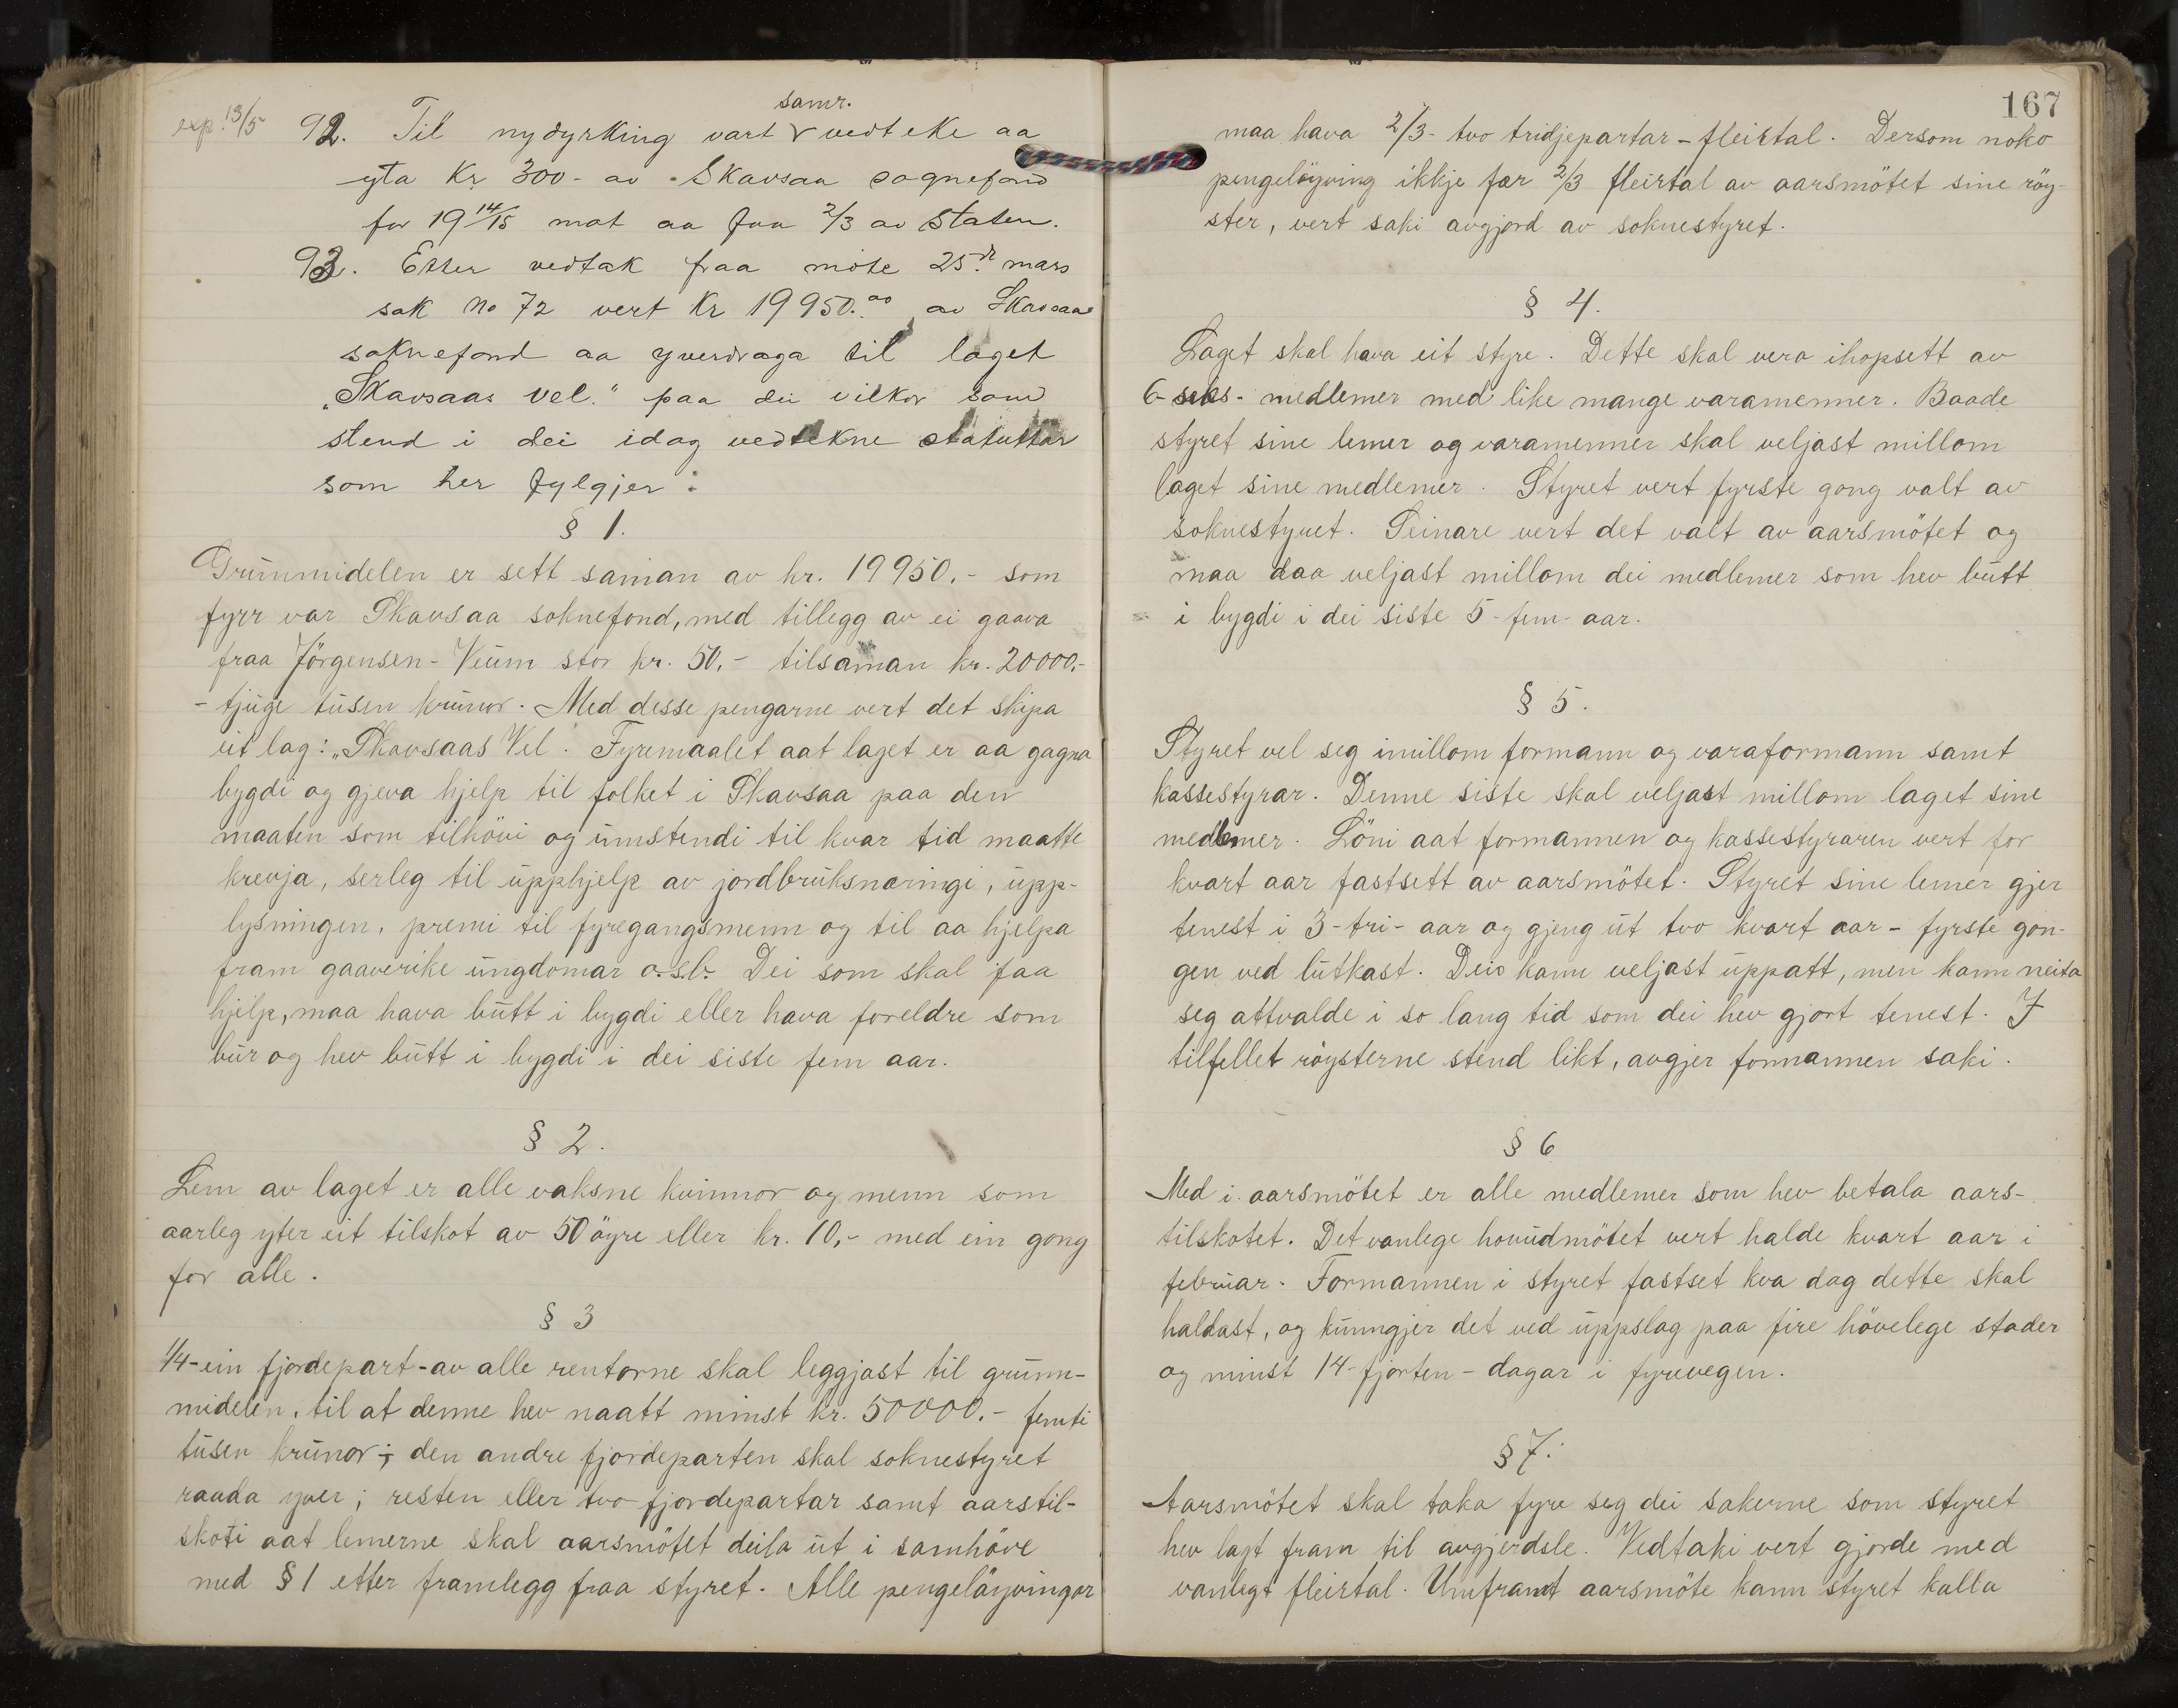 exp. 13/5 92. Til nydyrking vart samr. vedteke aa
yta Kr 300- av Skavsaa sognefond
for 19 14/15 mot aa faa 2/3 av Staten.
93. Etter vedtak fraa möte 25de mars
sak No 72 vert Kr 19950.00 av Skavsaa
soknefond aa yverdraga til laget
"Skavsaas Vel." paa dei vilkor som
stend i dei idag vedtekne statuttar
som her fylgjer:
§ 1.
Grunnmidelen er sett saman av kr. 19950.- som
fyrr var Skavsaa soknefond, med tillegg av ei gaava
fraa Jörgensen-Veum stor kr. 50,- tilsaman kr. 20000.-
- tjuge tusen krunor. Med desse pengarne vert det skipa
eit lag: "Skavsaas Vel". Fyremaalet aat laget er aa gagna
bygdi og gjeva hjelp til folket i Skavsaa paa den
maaten som tilhövi og umstendi til kvar tid maatte
krevja, serleg til upphjelp av jordbruksnæringi, upp-
lysningen, premi til fyregangsmenn og til aa hjelpa
fram gaaverike ungdomar o.sb. Dei som skal faa
hjelp, maa hava butt i bygdi eller hava foreldre som
bur og hev butt i bygdi i dei siste fem aar.
§ 2.
Lem av laget er alle vaksne kvinnor og menn som
aarleg yter eit tilskot av 50 öyre eller kr. 10,- med ein gong
for alle.
§ 3
1/4-ein fjordepart-av alle rentorne skal leggjast til grunn-
midelen, til at denne hev naatt minst kr. 50000.- femti
tusen krunor-; den andre fjordeparten skal soknestyret
raada yver; resten eller tvo fjordepartar samt aarstil-
skoti aat lemerne skal aarsmötet deila ut i samhöve
med § 1 etter framlegg fraa styret. Alle pengelöyvingar
167
maa hava 2/3- tvo tridjepartar-fleirtal. Dersom noko
pengelöyving ikkje fær 2/3 fleirtal av aarsmötet sine röy-
ster, vert saki avgjord av soknestyret.
§ 4.
Laget skal hava eit styre. Dette skal vera ihopsett av
6-seks- medlemer med like mange varamenner. Baade
styret sine lemer og varamenner skal veljast millom
laget sine medlemer. Styret vert fyrste gong valt av
soknestyret. Seinare vert det valt av aarsmötet og
maa daa veljast millom dei medlemer som hev butt
i bygdi i dei siste 5-fem-aar.
§ 5.
Styret vel seg imillom formann og varaformann samt
kassestyrar. Denne siste skal veljast millom laget sine
medlemer. Löni aat formannen og kassestyraren vert for
kvart aar fastsett av aarsmötet. Styret sine lemer gjer
tenest i 3-tri-aar og gjeng ut tvo kvart aar- fyrste gon-
gen ved lutkast. Dei kann veljast uppatt, men kann neita
seg attvalde i so lang tid som dei hev gjort tenest. I
tilfellet röysterne stend likt, avgjer formannen saki.
§ 6
Med i aarsmötet er alle medlemer som hev betala aars-
tilskotet. Det vanlege hovudmötet vert halde kvart aar i
februar. Formannen i styret fastset kva dag dette skal
haldast, og kunngjer det ved uppslag paa fire hövelege stader
og minst 14-fjorten-dagar i fyrevegen.
§ 7.
Aarsmötet skal taka fyre seg dei sakerne som styret
hev lagt fram til avgjerdsle. Vedtaki vert gjorde med
vanlegt fleirtal. Umframt aarsmöte kann styret kalla